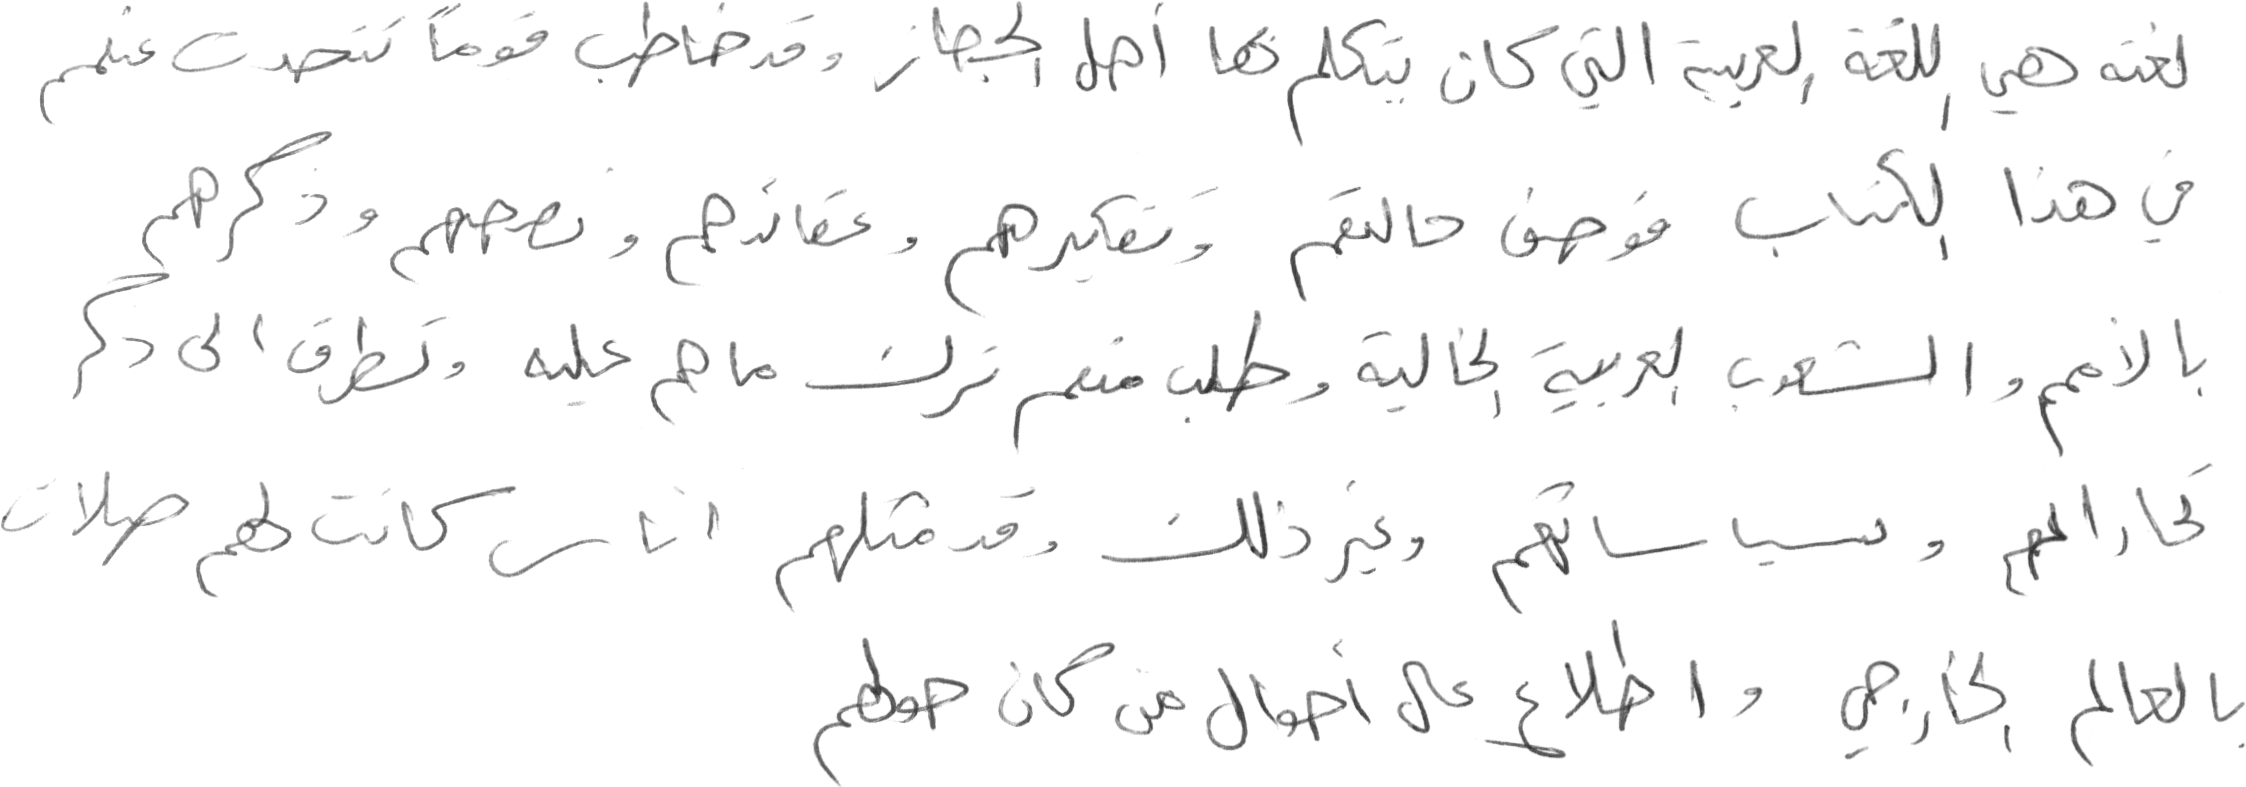 لغته هي اللغة العربية التي كان يتكلم بها أهل الحجاز وقد خاطب قوماً نتحدث عنهم
في هذا الكتاب فوصف حالتهم وتفكيرهم وعقائدهم ونصحهم وذكرهم
بالامم والشعوب العربية الخالية وطلب منهم ترك ما هم عليه وتطرق الى ذكر
تجاراتهم وسياساتهم وغير ذلك وقد مثلهم اناس كانت لهم صلات
بالعالم الخارجي واطلاع على أحوال من كان حولهم